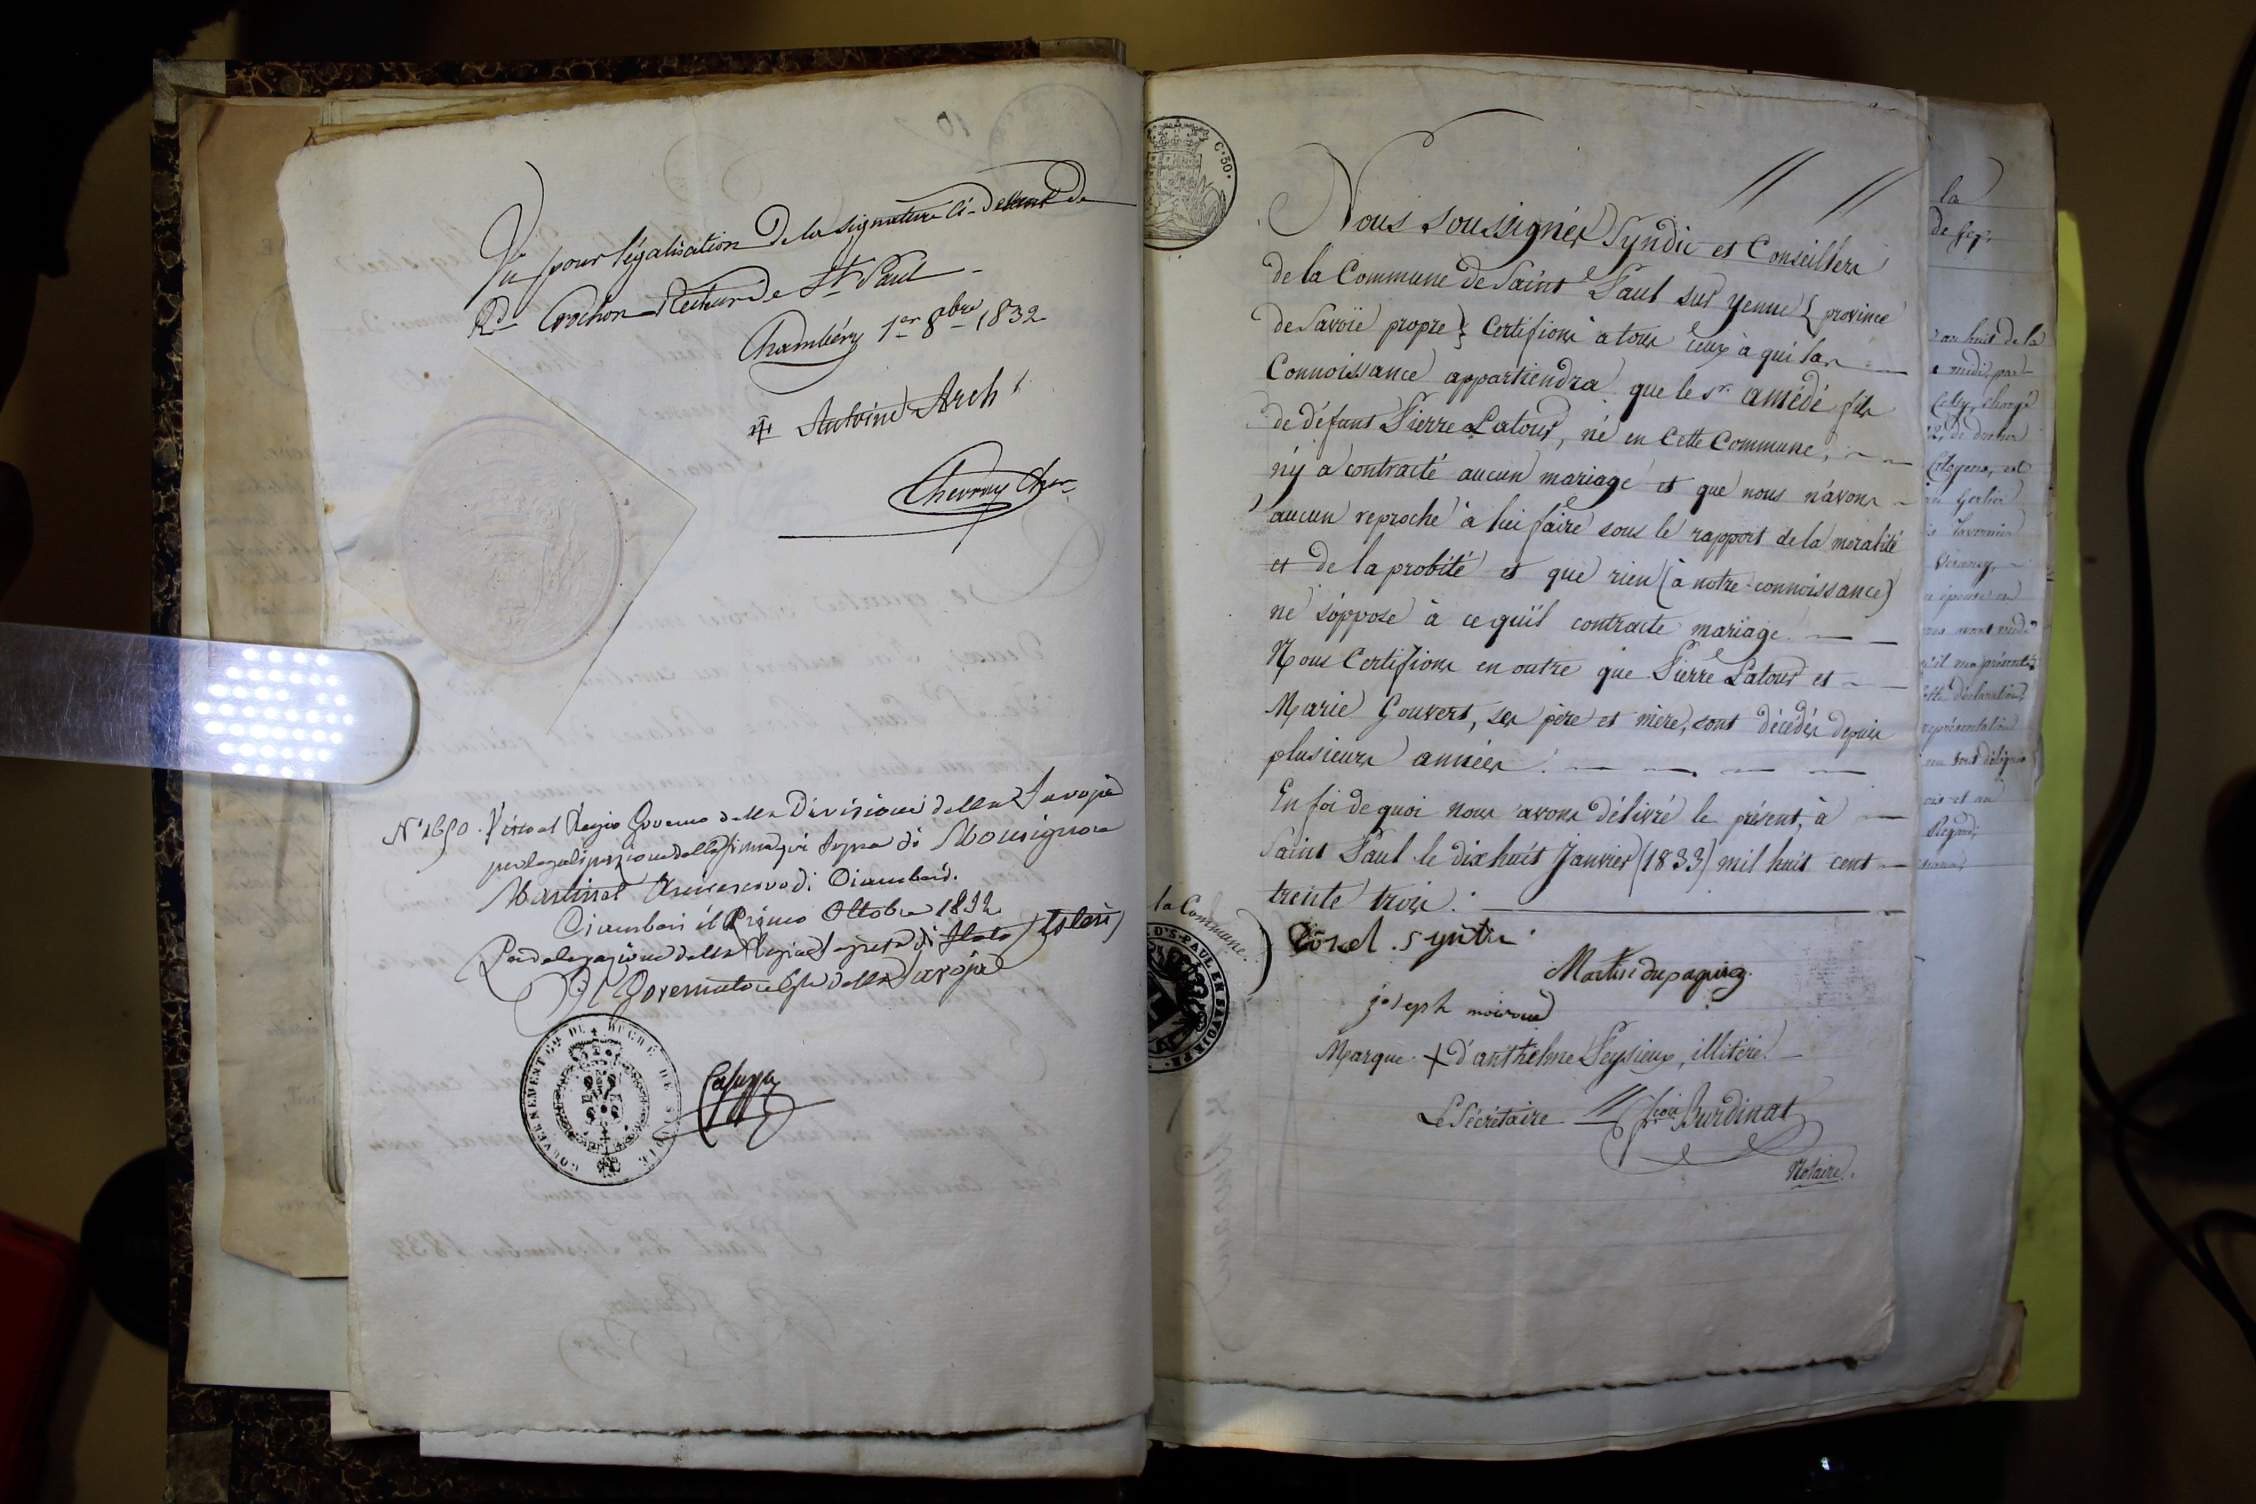 Vu pour légalisation de la signature ci-devant de
Rd Crochon Recteur de St Paul
Chambéry 1er 8bre 1832
Antoine Arch
N° 1650. Visto al Regio Governo della Divisione della Savoja
per legalizzazione della firma qui sopra di Monsignore
Martinet Arcivescovo di Ciamberì.
Ciamberi il Primo Ottobre 1832
Per delegazione della Regia Segreteria di Stato (Esteri)
Il Governatore Gle della Savoja
GOUVERNEMENT DU DUCHÉ DE SAVOIE
C. 50.
Nous soussignés Syndic et Conseillers
de la Commune de Saint Paul sur yenne { province
de Savoïe propre } Certifions à tous ceux à qui la
Connoissance appartiendra que le Sr amédé fils
de défunt Pierre Latour, né en Cette Commune,
n'y a contracté aucun mariage et que nous n'avons
aucun reproche à lui faire sous le rapport de la moralité
et de la probité et que rien (à notre connoissance)
ne s'oppose à ce qu'il contracte mariage.
Nous Certifions en outre que Pierre Latour et
Marie Gouvert, ses père et mère, sont décédés depuis
plusieurs années.
En foi de quoi nous avons délivré le présent, à
Saint Paul le dix huit Janvier (1833) mil huit cent
trente trois.
la Commune.
D. S. PAUL EN SAVOIE PR.
Martin dupasquier
joseph moiroud
Marque + d'anthelme Peysieux, illitéré
Le Sécrétaire Burdinat
Notaire.
la
de
huit de la
midi, par
présente
déclaration
représentation